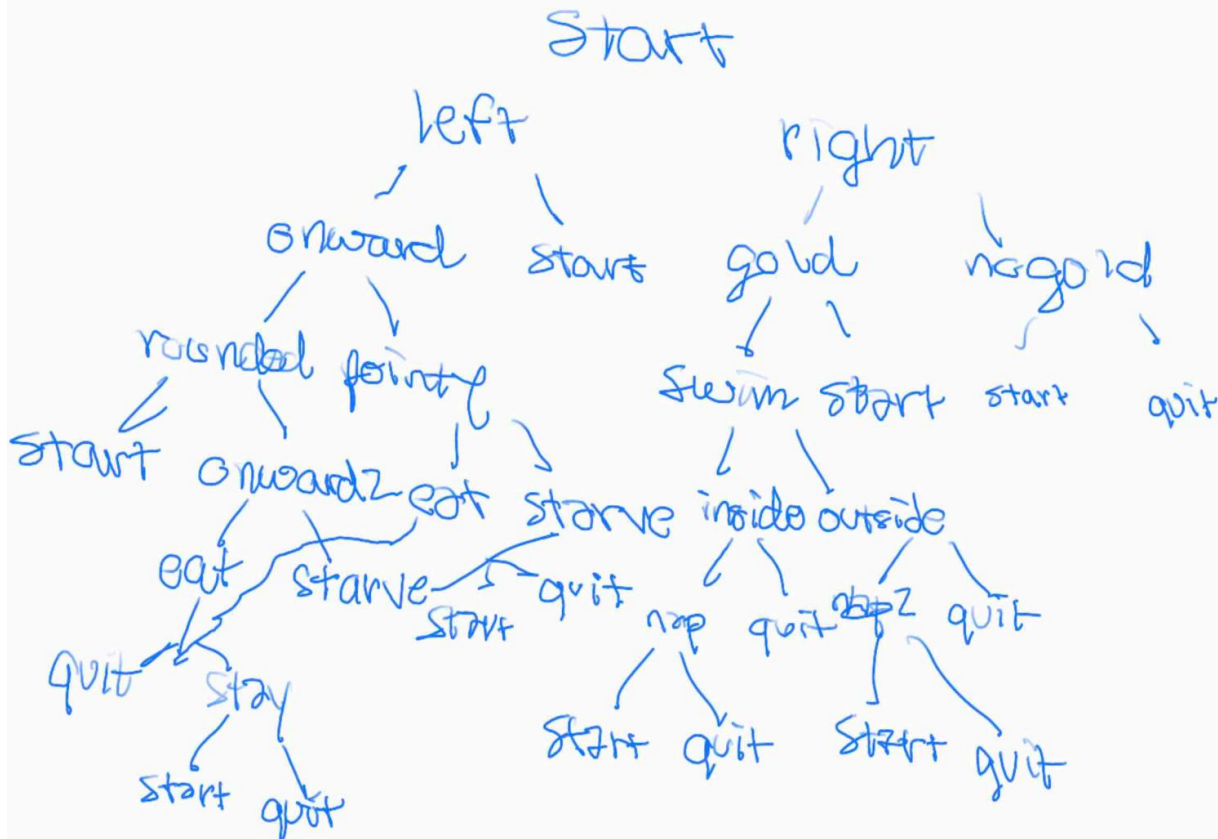 Start
left right
onward start gold nogold
rounded pointy swim start start quit
start onward2 eat starve inside outside
eat starve start quit nap quit nap2 quit
quit stay start quit start quit
start quit